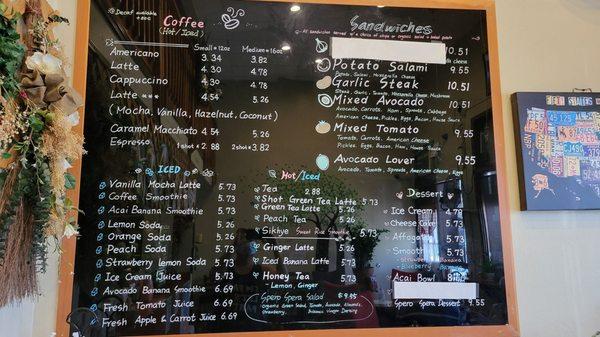 * Decaf available +80¢
Coffee
(Hot/Iced)
Small = 12oz Medium = 16oz
Americano 3.34 3.82
Latte 4.30 4.78
Cappuccino 4.30 4.78
Latte ** 4.54 5.26
(Mocha, Vanilla, Hazelnut, Coconut)
Caramel Macchiato 4.54 5.26
Espresso 1 shot x 2.88 2 shot x 3.82
ICED
Vanilla Mocha Latte 5.73
Coffee Smoothie 5.73
Acai Banana Smoothie 5.73
Lemon Soda 5.26
Orange Soda 5.26
Peach Soda 5.73
Strawberry Lemon Soda 5.73
Ice Cream Juice 5.73
Avocado Banana Smoothie 6.69
Fresh Tomato Juice 6.69
Fresh Apple & Carrot Juice 6.69
Hot/Iced
Tea 2.88
Shot Green Tea Latte 5.73
Green Tea Latte 5.26
Peach Tea 5.26
Sikhye Sweet Rice Smoothie 5.73
Ginger Latte 5.26
Iced Banana Latte 5.73
Honey Tea 5.73
- Lemon, Ginger
Spero Spera Salad $9.45
Organic Green Salad, Tomato, Avocado, Almonds,
Strawberry, Balsamic Vinegar Dressing
Sandwiches
All Sandwiches served w/ a choice of chips or organic salad + baked potato
10.51
Potato Salami 9.55
Potato, Salami, Mozzarella Cheese
Garlic Steak 10.51
Steak, Garlic, Tomato, Mozzarella Cheese, Mushroom
Mixed Avocado 10.51
Avocado, Carrots, Corn, Sprouts, Cabbage
American Cheese, Pickles, Eggs, Bacon, Ham, House Sauce
Mixed Tomato 9.55
Tomato, Carrots, American Cheese
Pickles, Eggs, Bacon, Ham, House Sauce
Avocado Lover 9.55
Avocado, Tomato, Sprouts, American Cheese, Eggs
Dessert
Ice Cream 4.78
Cheese Cake 5.73
Affogato 5.73
Smoothie 5.73
- Strawberry Banana
- Blueberry Banana
Acai Bowl
Spero Spera Dessert 9.55